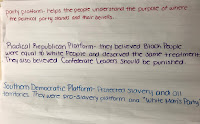 Party platform- helps the people understand the purpose of where
the political party stands and their beliefs.
Radical Republican Platform- they believed Black People
were equal to White People and deserved the same treatment.
They also believed Confederate Leaders should be punished.
Southern Democratic Platform- Protected slavery and all
territories. They were pro-slavery platform and "White Man's Party"